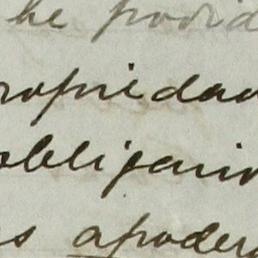 he podid
ropiedad
obligacio
s apodera